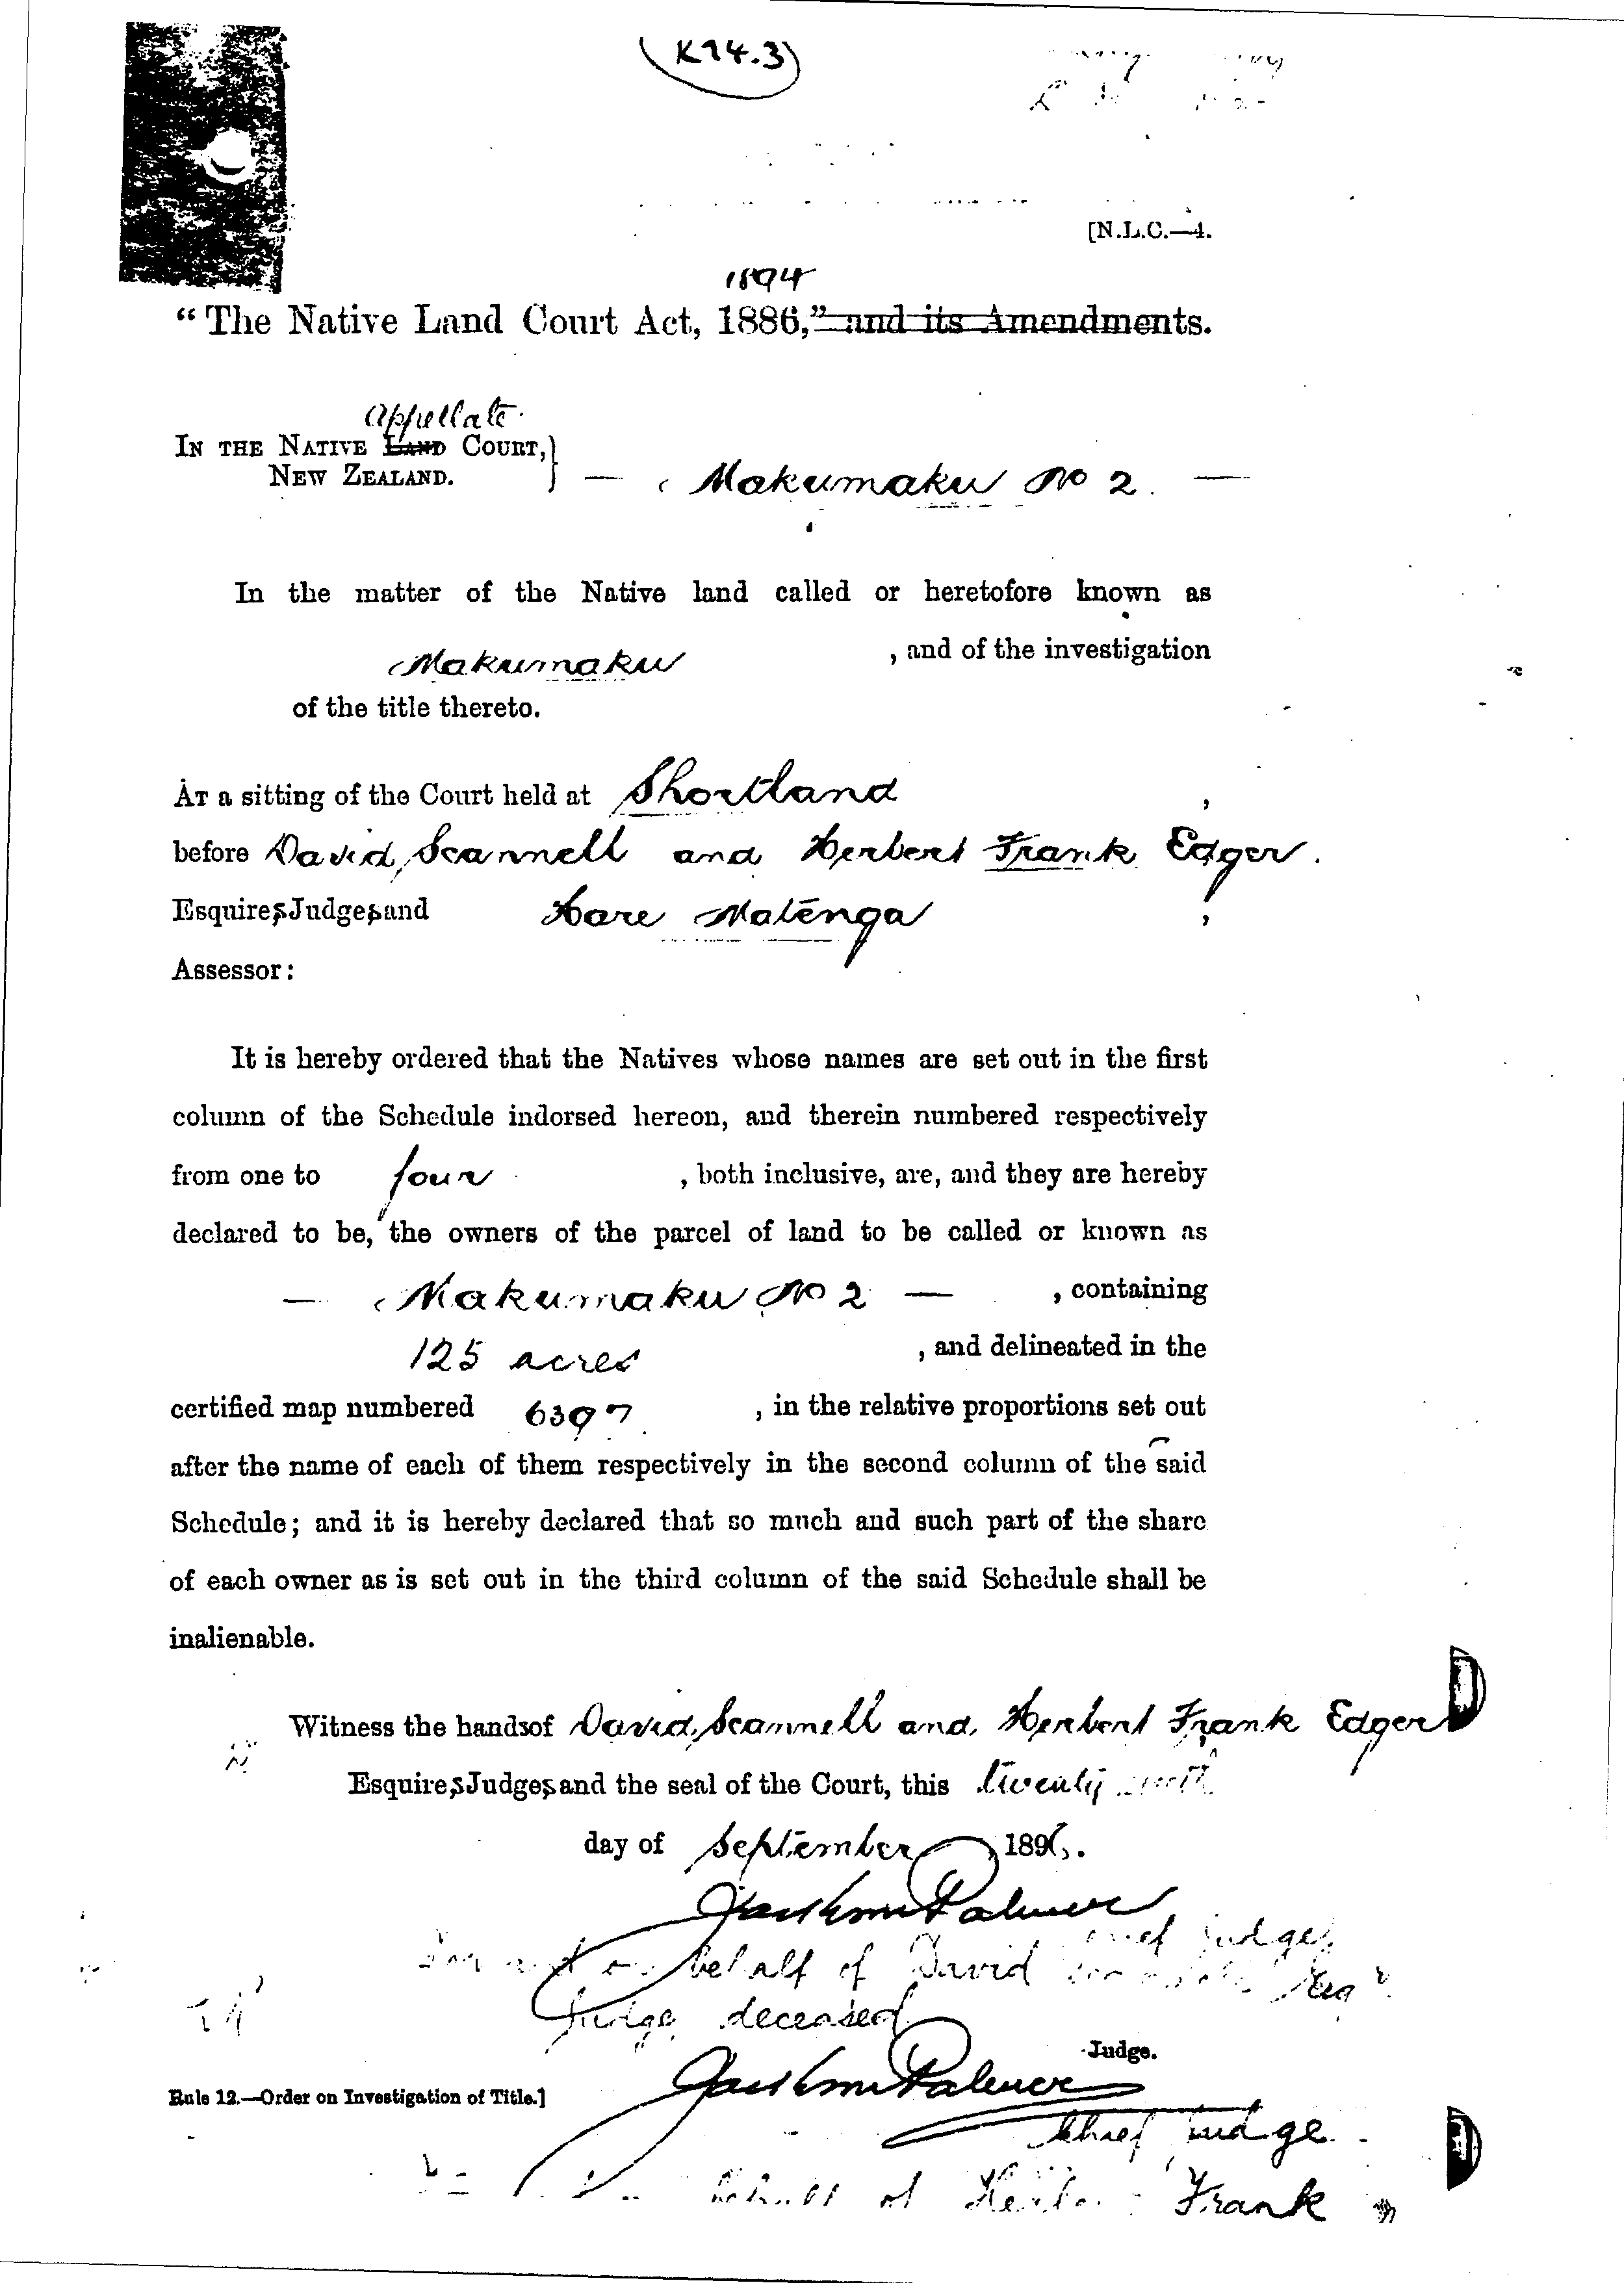 K14.3
[N.L.C.—4.
1894
"The Native Land Court Act, 1886," and its Amendments.
Appellate
IN THE NATIVE LAND COURT,
NEW ZEALAND.
— Makumaku No 2. —
In the matter of the Native land called or heretofore known as
Makumaku , and of the investigation
of the title thereto.
AT a sitting of the Court held at Shortland ,
before David Scannell and Herbert Frank Edger.
Esquires Judges and Hare Matenga ,
Assessor:
It is hereby ordered that the Natives whose names are set out in the first
column of the Schedule indorsed hereon, and therein numbered respectively
from one to four , both inclusive, are, and they are hereby
declared to be, the owners of the parcel of land to be called or known as
— Makumaku No 2 — , containing
125 acres , and delineated in the
certified map numbered 6397 , in the relative proportions set out
after the name of each of them respectively in the second column of the said
Schedule; and it is hereby declared that so much and such part of the share
of each owner as is set out in the third column of the said Schedule shall be
inalienable.
Witness the hands of David Scannell and Herbert Frank Edger
Esquires Judges and the seal of the Court, this twenty
day of September 1896.
Jackson Palmer
Judge
behalf of David
Judge deceased
Judge.
Jackson Palmer
Rule 12.—Order on Investigation of Title.]
Chief Judge.
behalf of Frank